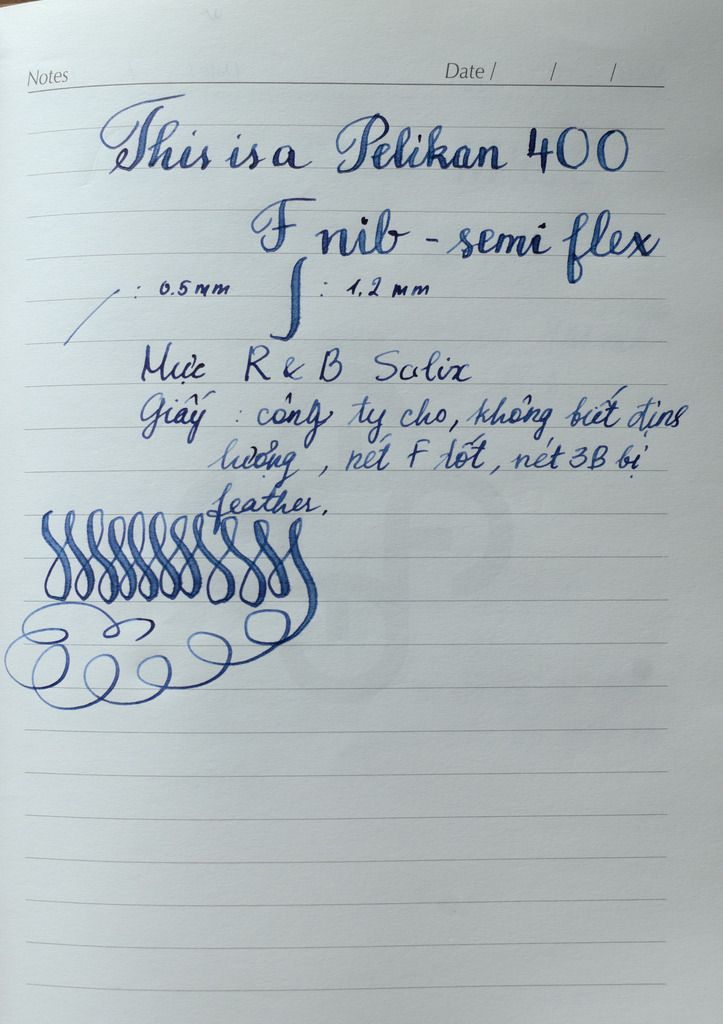 Notes Date / / /
This is a Pelikan 400
F nib - semi flex
: 0.5 mm : 1,2 mm
Mực R & B Salix
Giấy : công ty cho, không biết định
lượng, nét F tốt, nét 3B bị
feather.